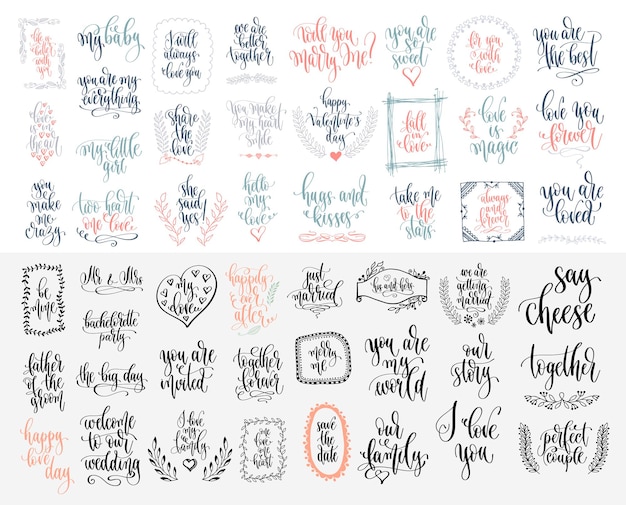 life is
better
with you
my baby
I will
always
love you
we are
better
together
Will you
Marry Me?
you are
so
sweet
for you
with
love
you are
the best
you are my
everything
love
is in
the air
share
the
love
you make
my heart
smile
happy
Valentine's
day
fall
in
love
love
is
magic
love you
forever
my little
girl
you
make
me
crazy
two heart
one love
she
said
yes!
hello
my
love
hugs and
kisses
take me
to the
stars
always
and
forever
you are
loved
be
mine
Mr & Mrs
my
love
happily
ever
after
just
married
his and hers
we are
getting
married
say
cheese
bachelorette
party
father
of the
groom
the big day
you are
invited
together
forever
marry
me
you are
my
world
our
story
together
happy
love day
welcome
to our
wedding
I love
my
family
one
heart
save
the
date
our
family
I love
you
perfect
couple